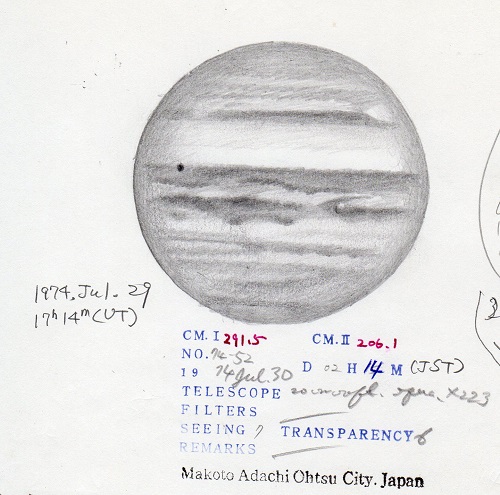 1974. Jul. 29
17h 14m (UT)
CM. I 291.5 CM. II 206.1
NO. 74-52
19 74 Jul. 30 D 02 H 14 M (JST)
TELESCOPE X223
FILTERS
SEEING 7 TRANSPARENCY 6
REMARKS
Makoto Adachi Ohtsu City. Japan